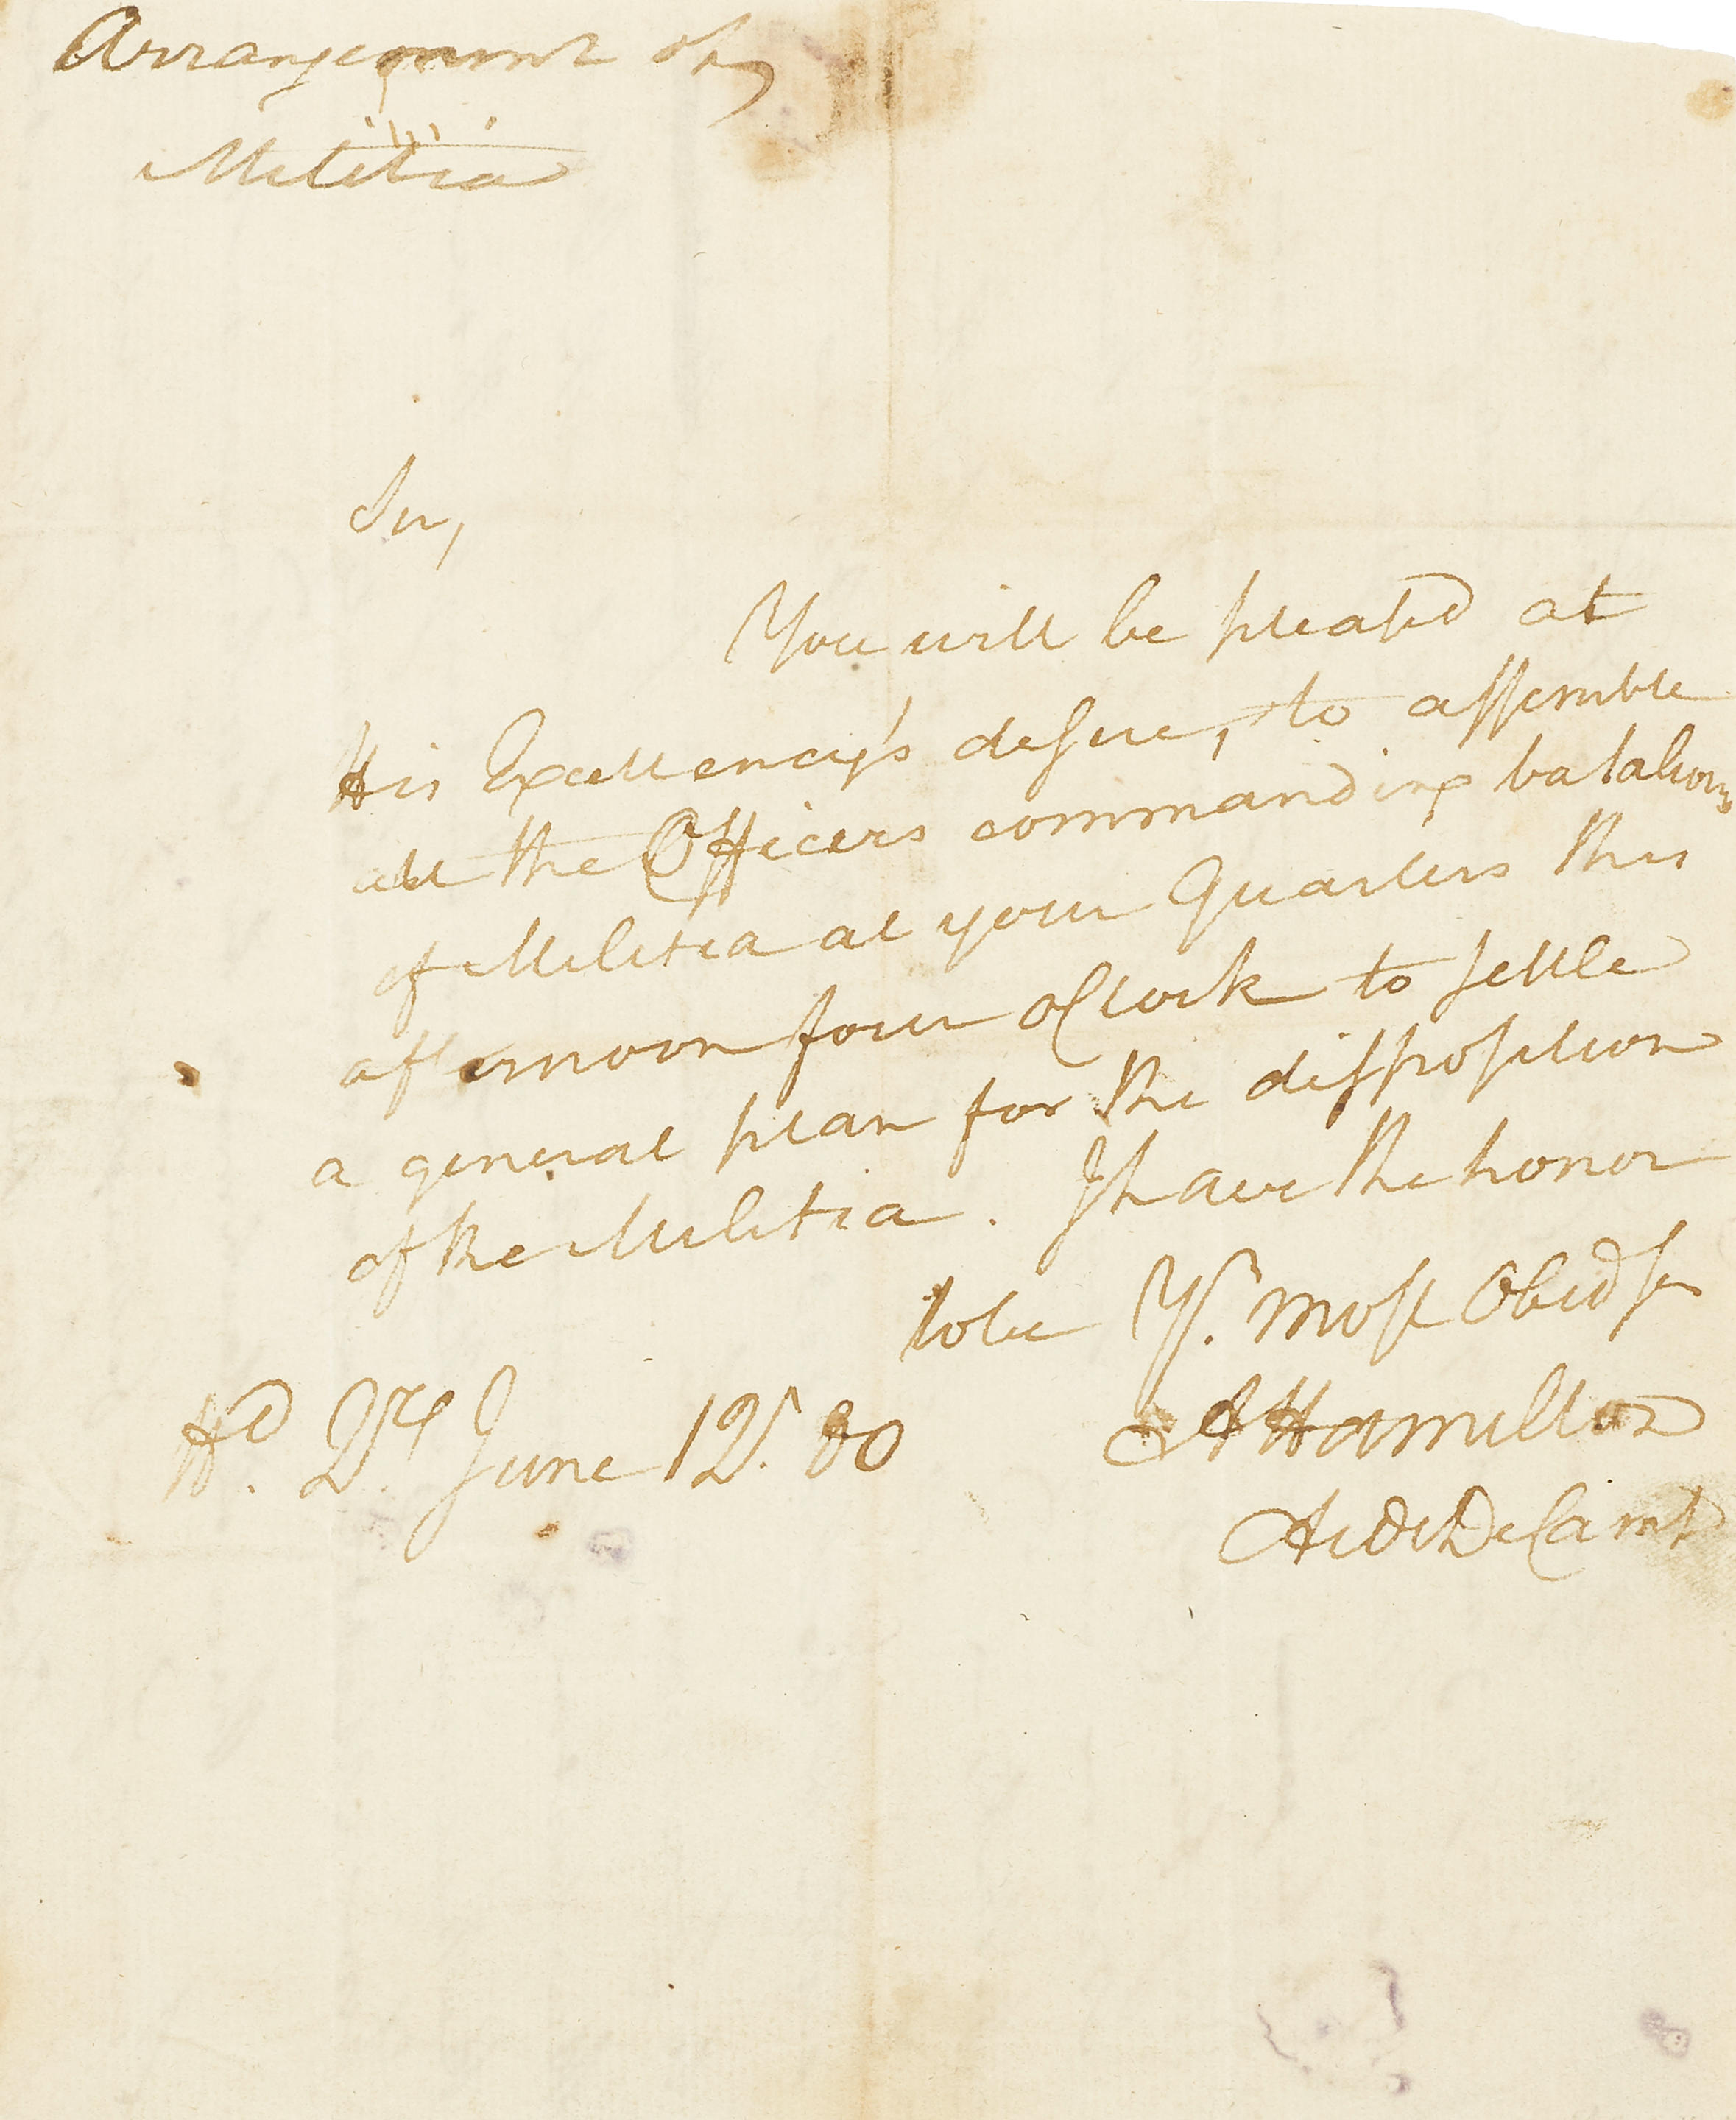 Arrangement of
Militia
Sir,
You will be pleased at
His Excellency's desire, to assemble
all the Officers commanding batalions
of Militia at your Quarters this
afternoon four oClock to settle
a general plan for the disposition
of the Militia. I have the honor
to be Yr. most Obed ser
A Hamilton
Hd. Qrs June 12. 80
Aide De Camp